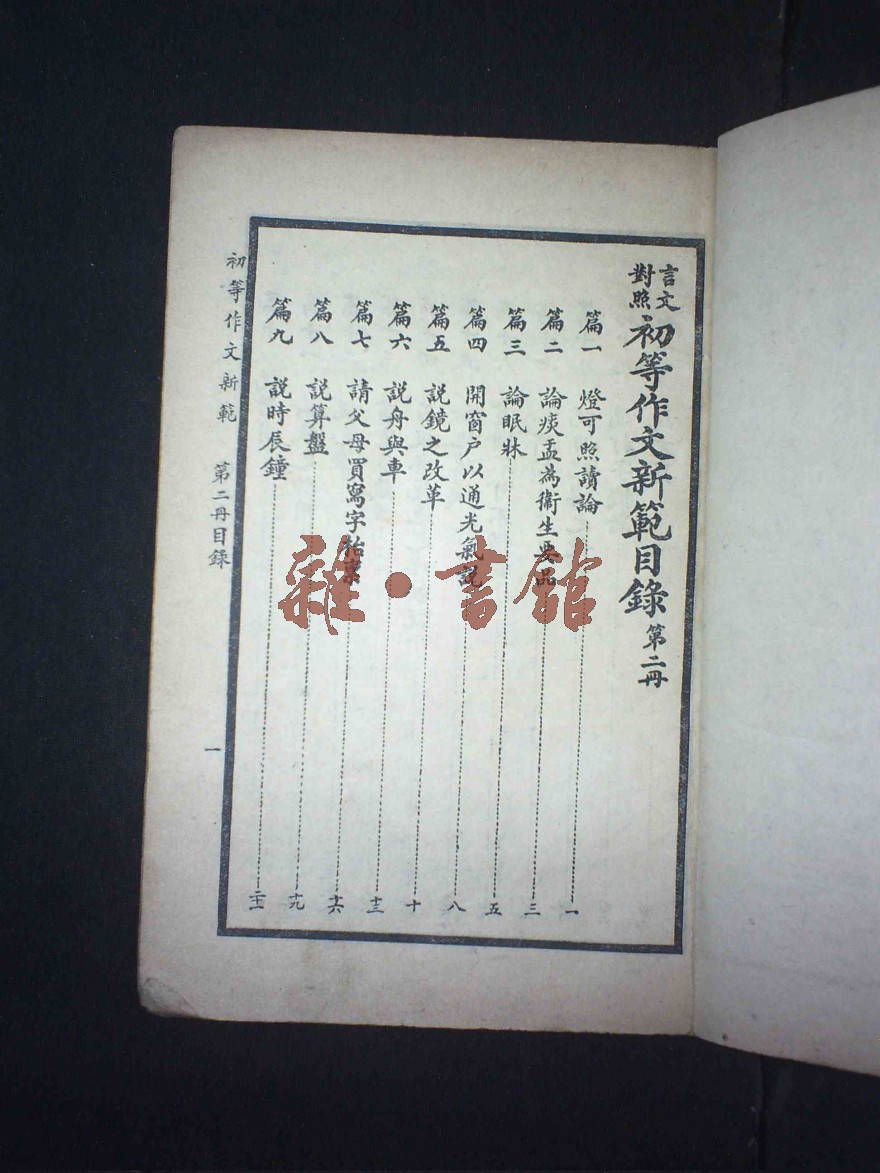 言文對照初等作文新範目錄 第二冊
篇一 燈可照讀論 一
篇二 論痰盂為衞生要品 三
篇三 論眠牀 五
篇四 開窗户以通光氣說 八
篇五 說鏡之改革 十
篇六 說舟與車 十三
篇七 請父母買寫字枱稟 十六
篇八 說算盤 十九
篇九 說時辰鐘 二十一
初等作文新範 第二冊目錄 一
雜·書館